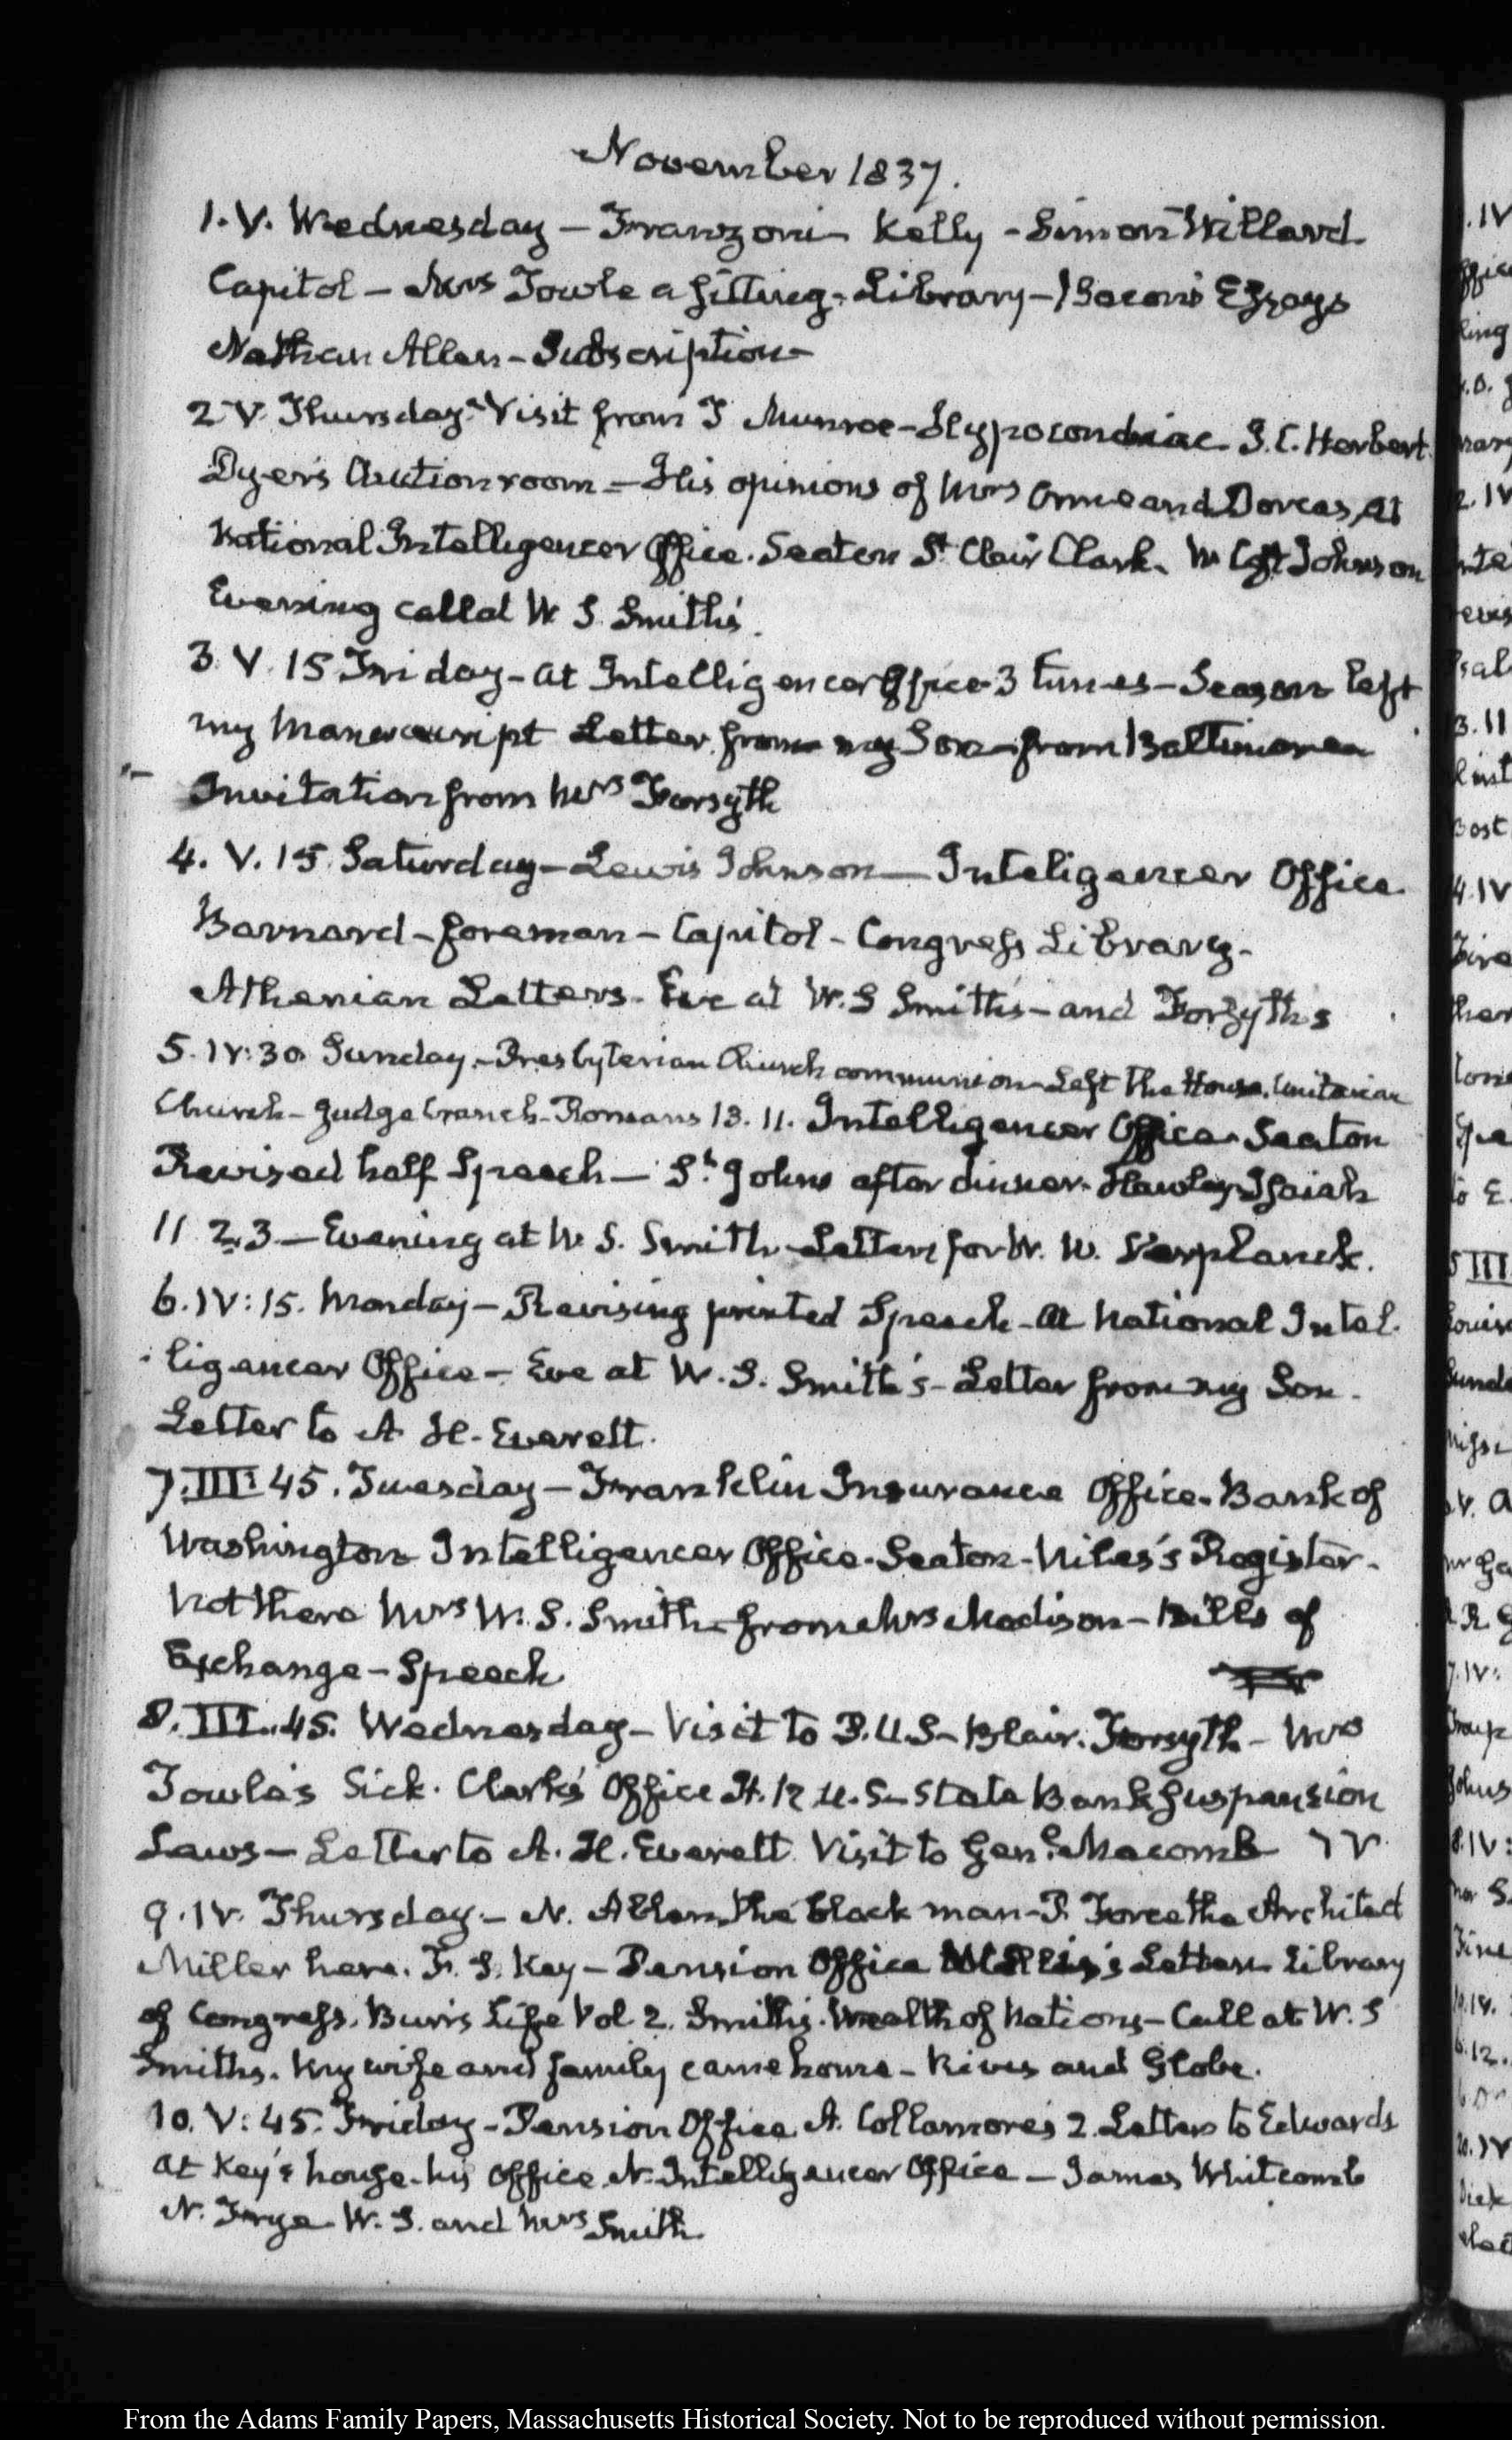 November 1837.
1. V. Wednesday – Franzoni – Kelly – Simon Willard
Capitol – Mrs Towle a sitting – Library – Bacon's Essays
Nathan Allen – Subscription –
2 V. Thursday – Visit from T Munroe – Hypocondriac J. C. Herbert
Dyer's Auction room – His opinions of Mrs and Dorcas, at
National Intelligencer Office. Seaton St Clair Clark. W C Johnson
Evening called W S Smith's.
3. V. 15 Friday – at Intelligencer Office 3 times – left
my Manuscript Letter from my Son – from Baltimore
Invitation from Mrs Forsyth
4. V. 15 Saturday – Lewis Johnson – Inteligencer Office
Barnard – foreman – Capitol – Congress Library –
Athenian Letters – Eve at W. S Smith's – and Forsyth's
5. IV: 30 Sunday – Presbyterian Church communion – Left the House. Unitarian
Church – Judge Cranch – Romans 13. 11. Intelligencer Office – Seaton
Revised half Speech – St Johns after dinner – Hawley – Isaiah
11 2, 3 – Evening at W. S. Smith – Letter for W. W. Verplanck.
6. IV: 15. Monday – Revising printed Speech – at National Intel-
ligencer Office – Eve at W. S. Smith's – Letter from my Son –
Letter to A H. Everett.
7. III: 45. Tuesday – Franklin Insurance Office – Bank of
Washington Intelligencer Office – Seaton – Niles's Register –
Not there Mrs W. S. Smith – from Mrs Madison – Bills of
Exchange – Speech
8. III. 45. Wednesday – Visit to B. U. S – Blair. Forsyth – Mrs
Towle's Sick. Clark's Office H. R U. S – State Bank Suspension
Laws – Letter to A. H. Everett Visit to Genl Macomb IV
9. IV. Thursday – N. Allen the black man – P. Force the Architect
Miller here. F. S. Key – Pension Office Letters Library
of Congress. Burr's Life Vol 2. Smith's Wealth of Nations – Call at W. S
Smiths. My wife and family came home – Rives and Globe.
10. V: 45. Friday – Pension Office A. Collamore's 2 Letters to Edwards
at Key's house – his Office N. Intelligencer Office – James Whitcomb
N. Frye W. S. and Mrs Smith.
.IV
From the Adams Family Papers, Massachusetts Historical Society. Not to be reproduced without permission.